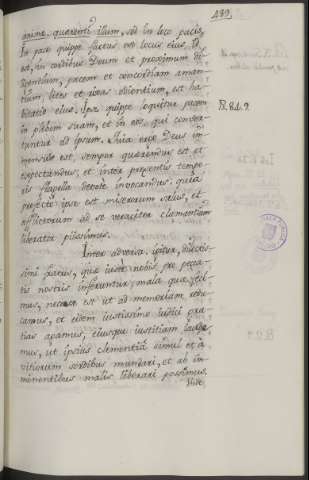 489.
anime quærenti illum, sed in loco pacis.
In pace quippe factus est locus ejus. Id
est, in cordibus Deum et proximum di-
ligentium, pacem et concordiam aman-
tium, lites et rixas odientium, est ha-
bitatio ejus. Ipse quippe loquitur pacem
in plebem suam, et in eos, qui conver-
tuntur ad ipsum. Quia ergo Deus im-
mensus est, semper quærendus est et
expectandus, et inter præsentis tempo-
ris flagella devote invocandus: quia
profecto ipse est miserorum salus, et
afflictorum ad se veraciter clamantium
liberator piissimus.
Inter adversa igitur, dilectis-
simi fratres, quæ juste nobis pro pecca-
tis nostris inferuntur, mala quæ feci-
mus, necesse est ut ad memoriam redu-
camus, et eidem justissimo judici gra-
tias agamus, ejusque justitiam laude-
mus, ut ipsius clementiâ simul et à
vitiorum sordibus mundari, et ab im-
minentibus malis liberari possimus.